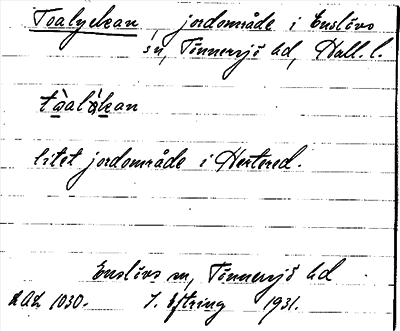 Toalyckan, jordområde i Enslövs
sn, Tönnersjö hd, Hall. l.
tàalàkan
litet jordområde i Hertered.
Enslövs sn, Tönnersjö hd
1030. 1931.